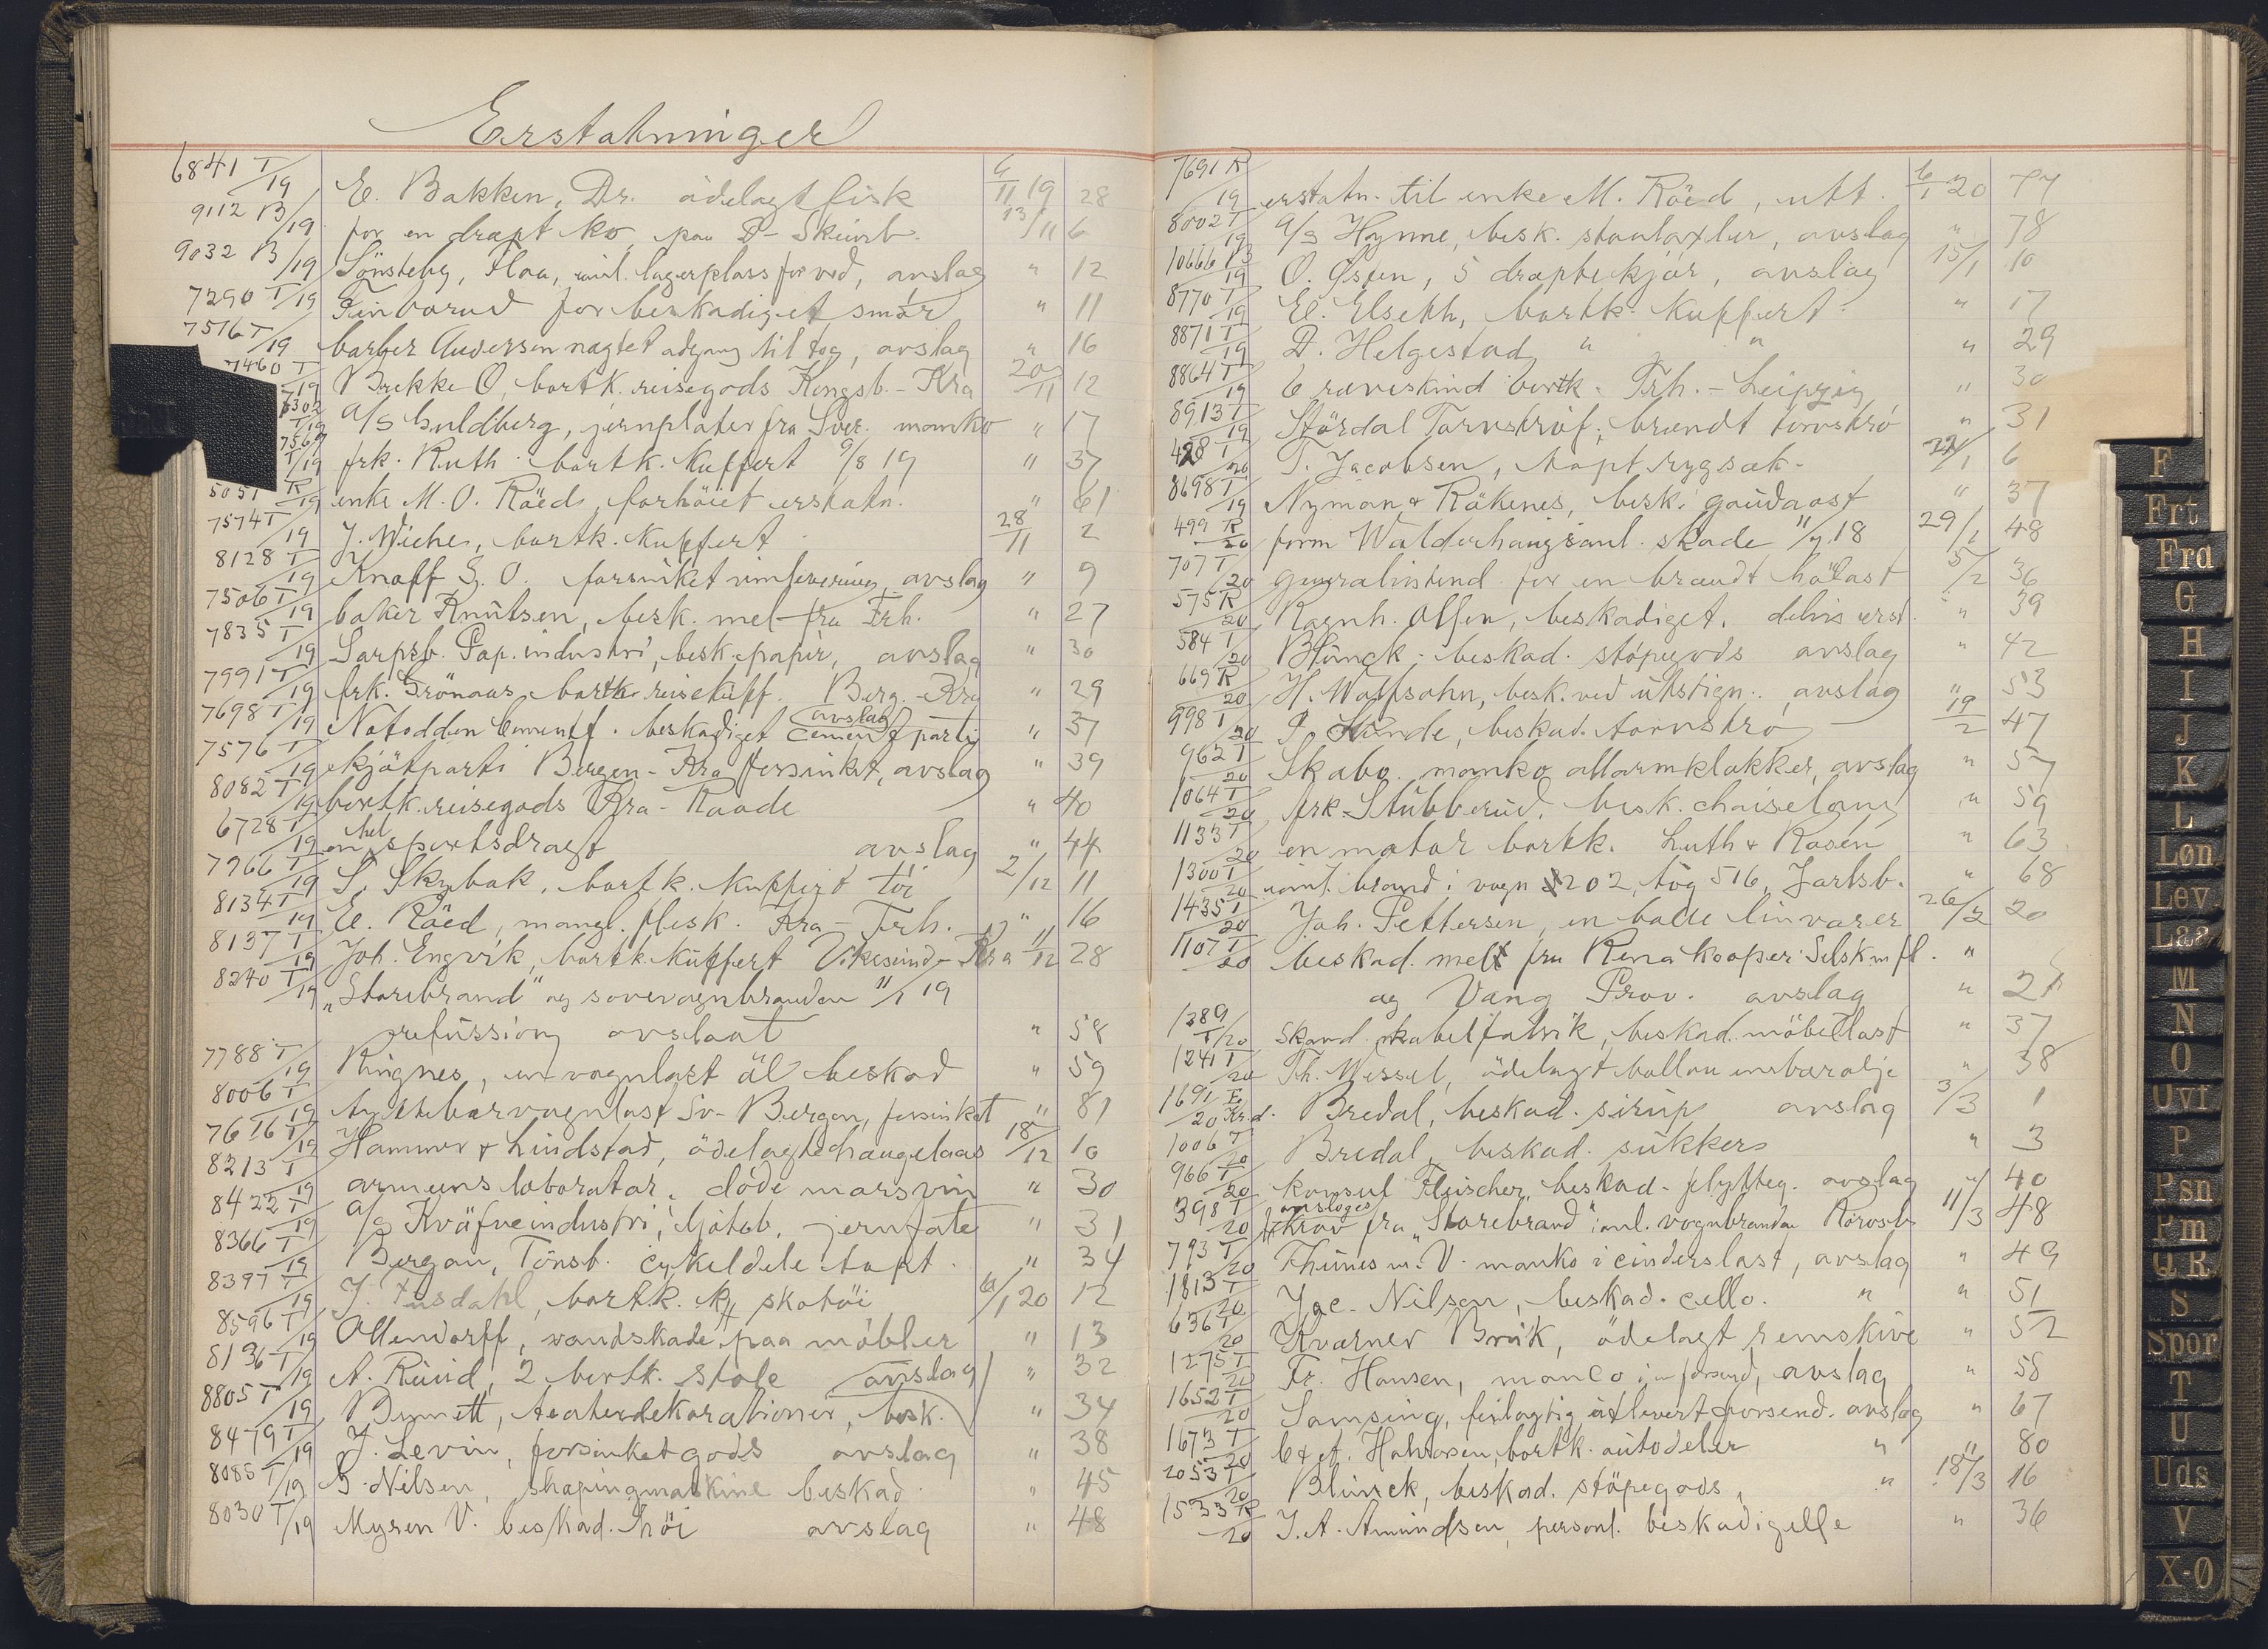 Erstatninger
6841 T/19 E. Bakken, Dr. ödelagt fisk 6/11 19 28
9112 B/19 for en dræpt ko paa D- Skinsb. 13/11 6
9032 B/19 Sönsteby, Flaa, lagerplass for ved, avslag " 12
7290 T/19 Finborud for beskadiget smör " 11
7516 T/19 barber Andersen nægtet adgang til tog, avslag " 16
7460 T/19 Brekke O, bortk. reisegods Kongsb. - Kra 20/11 12
6302 T/19 a/s Guldberg, jernplater fra Sver. manko " 17
7567 T/19 frk. Ruth bortk. kuffert 9/8 19 " 37
5051 R/19 enke M. O. Röed, forhöiet erstatn. " 61
7574 T/19 J. Wiche, bortk. kuffert 28/11 2
8128 T/19 Knoff S. O. forsinket avslag " 9
7506 T/19 baker Knutsen, besk. mel fra Trh. " 27
7835 T/19 Sarpsb. Pap. industri, besk. papir, avslag " 30
7991 T/19 frk. Grönaas, bortk. reisekuff. Berg. - Kra " 29
7698 T/19 Notodden Cementf. beskadiget cement parti avslag " 37
7576 T/19 kjötparti Bergen - Kra forsinket, avslag " 39
8082 T/19 bortk. reisegods Kra - Raade " 40
6728 T/19 en hel sportsdragt avslag " 44
7966 T/19 S. Skybak, bortk. kuffert töi 2/12 11
8134 T/19 E. Röed, mangl. flesk. Kra - Trh. " 16
8137 T/19 Joh. Engvik, bortk. kuffert Vikesund - Kra 11/12 28
8240 T/19 "Storebrand" og sovevognbranden 11/1 19
refussion avslaat " 58
7788 T/19 Ringnes, en vognlast öl beskad " 59
8006 T/19 tyttebærvognlast Sv- Bergen, forsinket " 81
7616 T/19 Hammer & Lindstad, ödelagte hængelaas 18/12 10
8213 T/19 armeens laborator. döde marsvin " 30
8422 T/19 a/s Kväfveindustri, Göteb. jernfate " 31
8366 T/19 Bergan, Tönsb. cykeldele tapt. " 34
8397 T/19 J. bortk. skotöi 6/1 20 12
8596 T/19 Ollendorff, vandskade paa möbler " 13
8136 T/19 A. Ruud, 2 bortk. stole avslag " 32
8805 T/19 Bennett, teaterdekorationer, besk. " 34
8479 T/19 J. Levin, forsinket gods avslag " 38
8085 T/19 G. Nilsen, shapingmaskine beskad. " 45
8030 T/19 Myren V. beskad. höi avslag " 48
7691 R/19 erstatn. til enke M. Röed, utt. 6/1 20 77
8002 T/19 a/s Hynne, besk. avslag " 78
10666 B/19 O. Öseen, 5 dræpte kjör, avslag 15/1 10
8770 T/19 El. Elseth, bortk. kuffert " 17
8871 T/19 D. Helgestad " " " 29
8864 T/19 6 ræveskind bortk. Trh. - Leipzig " 30
8913 T/19 Stördal Torvströf, brændt torvströ " 31
428 T/20 T. Jacobsen, tapt rygsæk. 22/1 6
8698 T/19 Nyman & Räkenes, besk. gaudaost " 37
499 R/20 form Walderhaugs anl. skade 11/7 18 29/1 48
707 T/20 generalintend. for en brændt hölast 5/2 36
575 R/20 Ragnh. Olsen, beskadiget. delvis erst. " 39
584 T/20 Blunck beskad. stöpegods avslag " 42
669 R/20 H. Wolfsohn, besk. ved utstign. avslag " 53
998 T/20 P. Strande, beskad. torvströ 19/2 47
962 T/20 Skabo manko allarmklokker, avslag " 57
1064 T/20 frk. Stubberud, besk. chaiselong " 59
1133 T/20 en motor bortk. Luth & Rosén " 63
1300 T/20 brand i vogn 202, tog 516, Jarlsb. " 68
1435 T/20 Joh. Pettersen, en balle linvarer 26/2 20
1107 T/20 beskad. mel fra Rena kooper Selsk m fl. "
og Vang Prov. avslag " 21
1389 T/20 skand. kabelfabrik, beskad. möbellast " 37
1241 T/20 Th. Wessel, ödelagt ballon enebærolje " 38
1691 E/20 Kr.d. Bredal, beskad. sirup avslag 3/3 1
1006 T/20 Bredal, beskad. sukker " 3
966 T/20 konsul Fleischer, beskad. flytteg. avslag " 40
398 T/20 krav fra "Storebrand" anl. vognbranden Rörosb avslages 11/3 48
793 T/20 Thunes m. V. manko i cinderslast, avslag " 49
1813 T/20 Jac. Nilsen, beskad. cello. " " 51
636 T/20 Kværner Bruk, ödelagt remskive " 52
1275 T/20 Fr. Hansen, manco i avslag " 58
1652 T/20 Samsing, feilagtig utlevert forsend. avslag " 67
1673 T/20 bortk. autodeler " " 80
2053 T/20 Blunck, beskad. stöpegods, " 18/3 16
1533 R/20 J. A. Amundsen, personl. beskadigelle " 36
F
Frt
Frd
G
H
I
J
K
L
Løn
Lev
Laa
M
N
O
Uvf
P
Psn
Pm
Q R
S
Spor
T
U
Uds
V
X-Ø